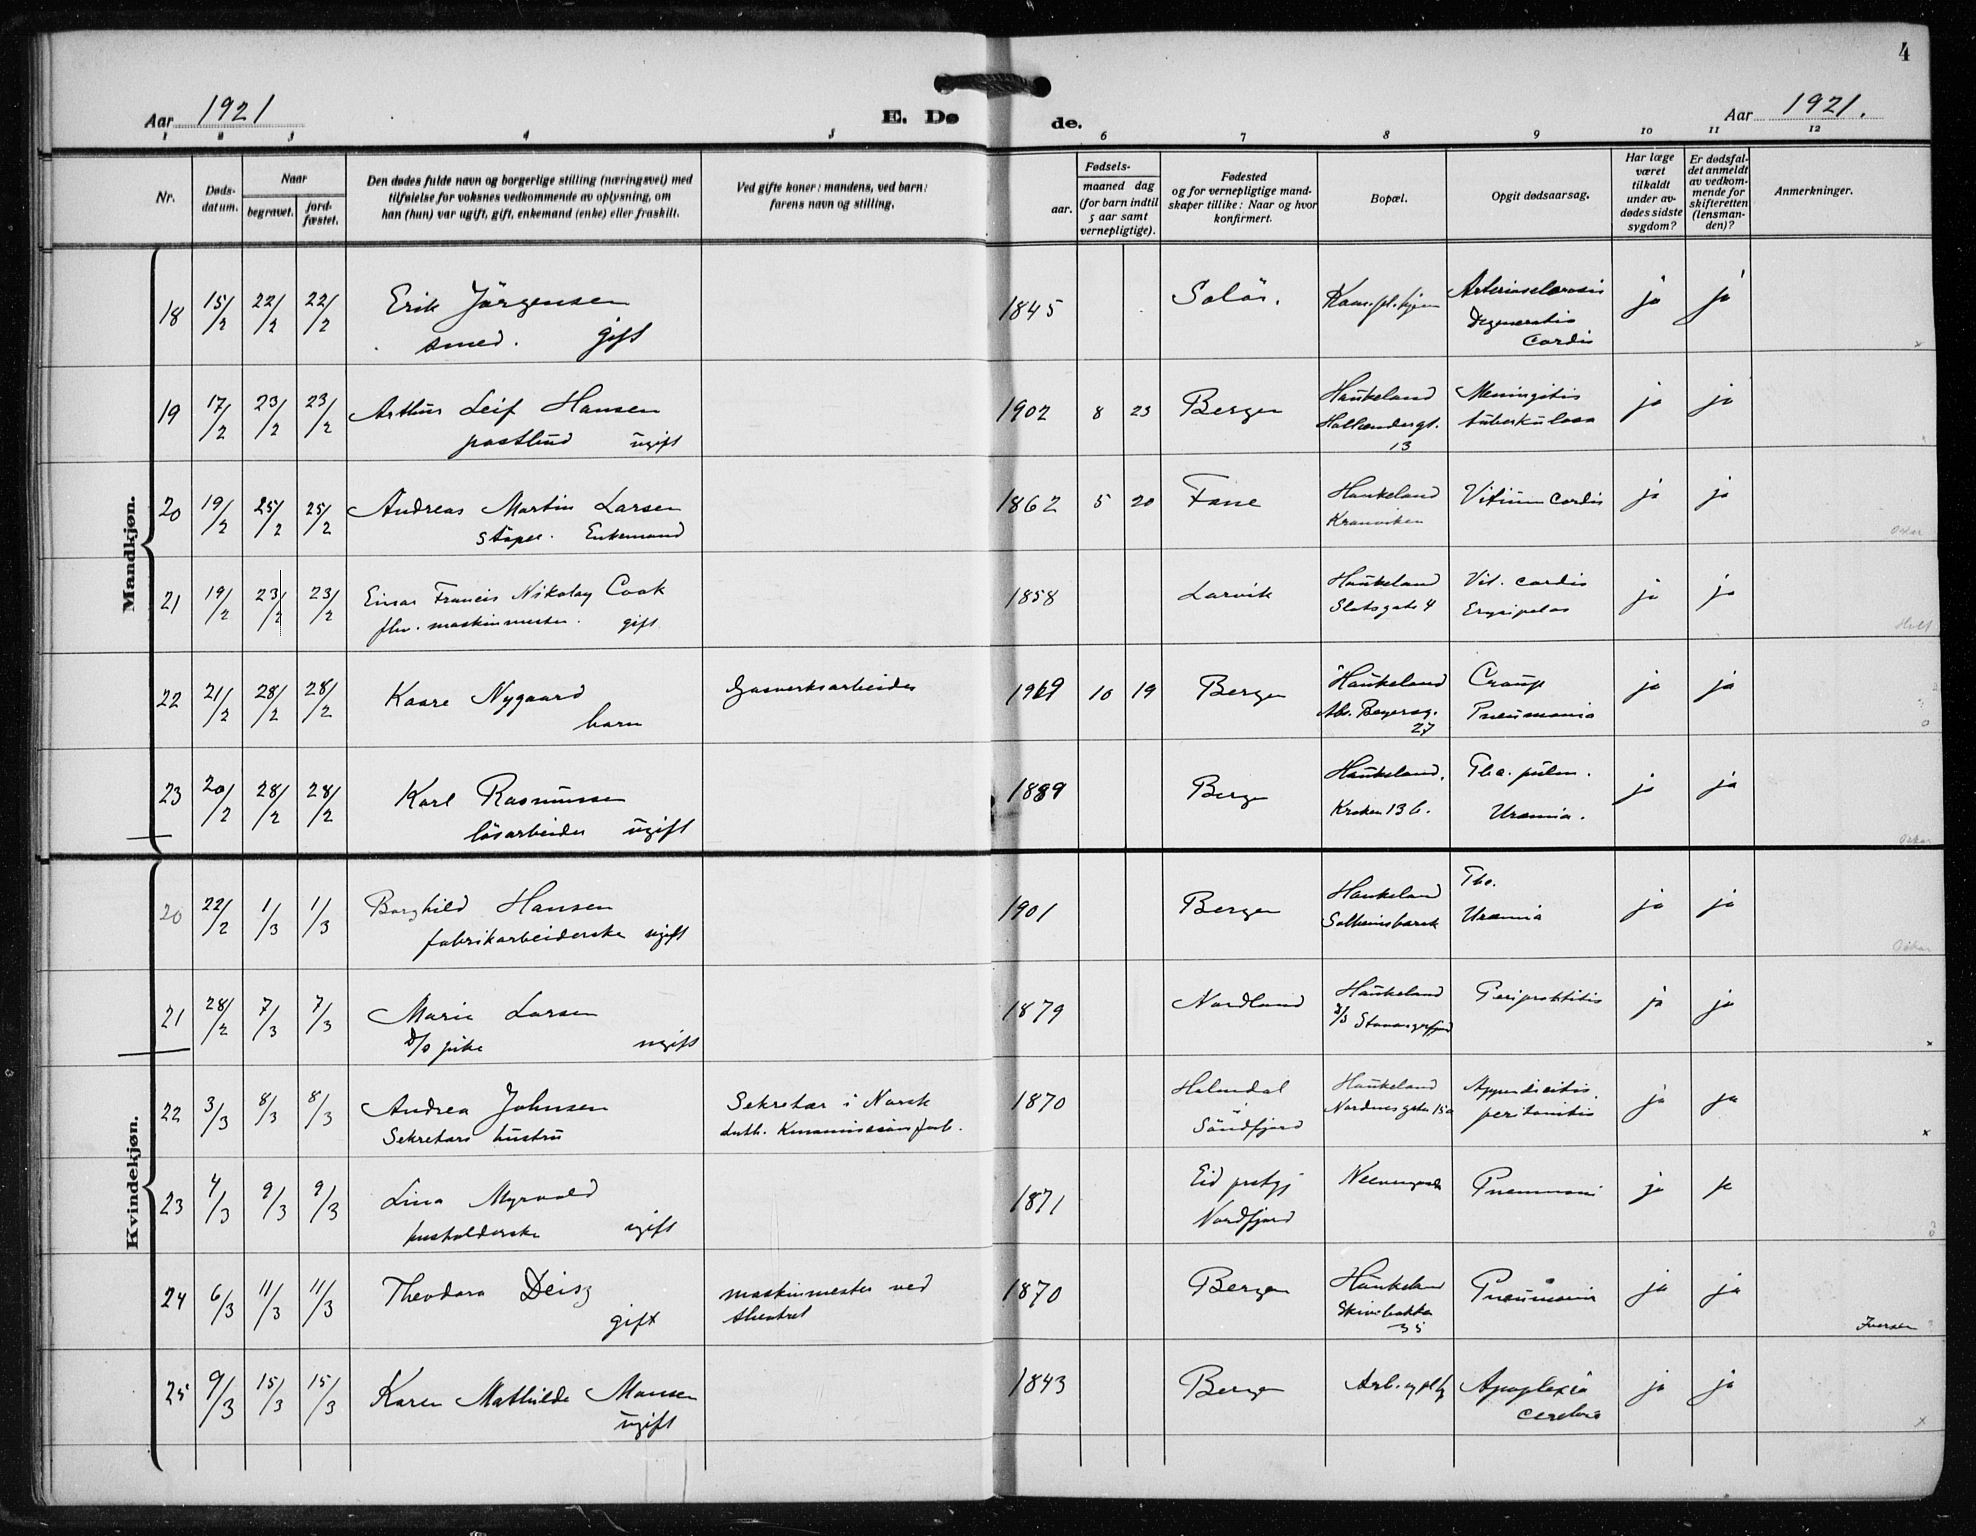 4
Aar 1921
E. Dø
de.
Aar 1921.
1 2 3 4 5 6 7 8 9 10 11 12
Nr.
Døds-
datum.
Naar
begravet.
jord-
fæstet.
Den dødes fulde navn og borgerlige stilling (næringsvei) med
tilføielse for voksnes vedkommende av oplysning, om
han (hun) var ugift, gift, enkemand (enke) eller fraskilt.
Ved gifte koner: mandens, ved barn:
farens navn og stilling.
Fødsels-
aar.
maaned dag
(for barn indtil
5 aar samt
vernepligtige).
Fødested
og for vernepligtige mand-
skaper tillike: Naar og hvor
konfirmert.
Bopæl.
Opgit dødsaarsag.
Har læge
været
tilkaldt
under av-
dødes sidste
sygdom?
Er dødsfal-
det anmeldt
av vedkom-
mende for
skifteretten
(lensman-
den)?
Anmerkninger.
Mandkjøn.
18 15/2 22/2 22/2 Erik Jörgensen 1845 Solör. Arteriosclerosis ja ja
smed. gift Degeneratio
Cordis
19 17/2 23/2 23/2 Arthur Leif Hansen 1902 8 23 Bergen Haukeland Meningitis ja ja
postbud ugift Hollendergt. tuberkulosa
13
20 19/2 25/2 25/2 Andreas Martin Larsen 1862 5 20 Fane Haukeland Vitium cordis ja ja
Enkemand Kranviken
Oskar
21 19/2 23/2 23/2 Einar Francis Nikolay Cook 1858 Larvik Haukeland Vit. cordis ja ja
fhv. maskinmester. gift Slotsgate 4 Erysipelas
22 21/2 28/2 28/2 Kaare Nygaard Gasverksarbeider 1919 10 19 Bergen Haukeland Croup ja ja
barn Abs. Beyersg. Pneumonia
27
23 20/2 28/2 28/2 Karl Rasmussen 1889 Bergen Haukeland. Tba. pulm. ja ja
lösarbeider ugift Kroken 13 b. Uræmia.
Oskar
Kvindekjøn.
20 22/2 1/3 1/3 Borghild Hansen 1901 Bergen Haukeland Tbc. ja ja
fabrikarbeiderske ugift Solheimsbarak Uræmia
Oskar
21 28/2 7/3 7/3 Marie Larsen 1879 Nordland Haukeland Periproktitis ja ja
D/S pike ugift D/S Stavangerfjord
x
22 3/3 8/3 8/3 Andrea Johnsen Sekretær i Norsk 1870 Haukeland Appendicitis. ja ja
Sekretærs hustru i Söndfjord Nordnesgaten 15a peritonitis
x
23 4/3 9/3 9/3 Lina Myrvold 1871 Eid prstgj Neevengaard Pneumoni ja ja
husholderske ugift Nordfjord
24 6/3 11/3 11/3 Theodora Deisz maskinmester ved 1870 Bergen Haukeland Pneumonia ja ja
gift theatret Skivebakken
35
Iversen
25 9/3 15/3 15/3 Karen Mathilde Monsen 1843 Bergen Apoplexia ja ja
ugift cerebri
x